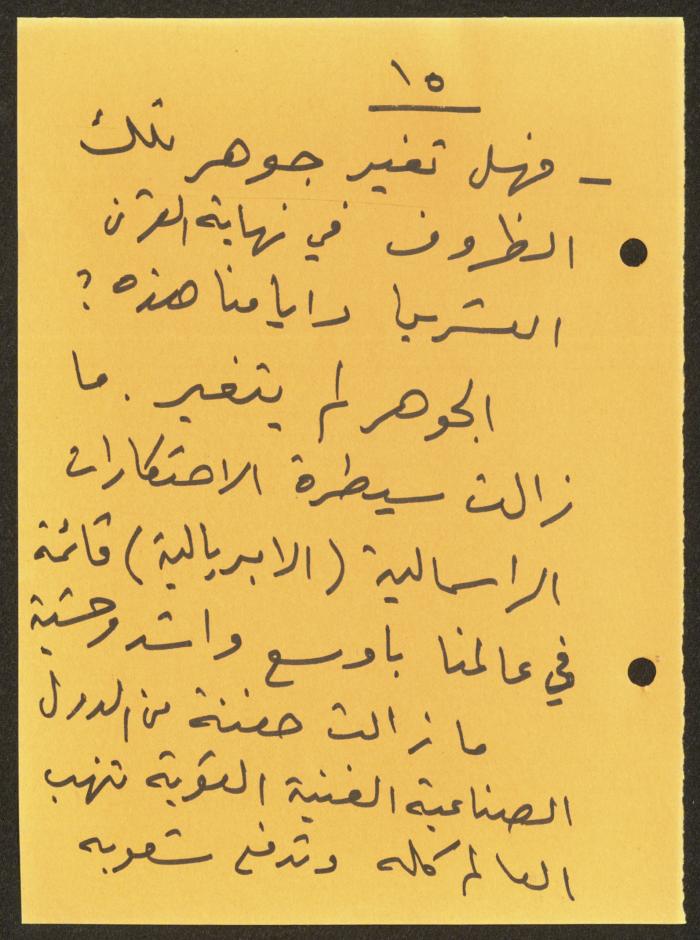 ١٥
- فهل تغير جوهر تلك
الظروف في نهاية القرن
العشرين وايامنا هذه ؟
الجوهر لم يتغير . ما
زالت سيطرة الاحتكارات
الراسمالية (الامبريالية) قائمة
في عالمنا باوسع واشد وحشية
ما زالت حفنة من الدول
الصناعية الغنية القوية تنهب
العالم كله وتدفع شعوبه